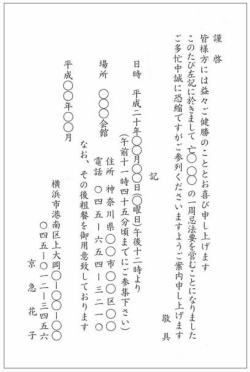 謹啓
皆様方には益々ご健勝のこととお喜び申し上げます
このたび左記に於きまして 亡〇〇〇〇の一周忌法要を営むことになりました
ご多忙中誠に恐縮ですがご参列くださいますようご案内申し上げます
敬具
記
日時 平成二十年〇〇月〇〇日(〇曜日)午後十二時より
(午前十一時四十五分頃までにご参集下さい)
場所 〇〇〇会館
住所 神奈川県〇〇市〇〇区〇〇
電話 〇四五-六五四-三二一〇
なお、その後粗餐を御用意致しております
平成〇〇年〇〇月
横浜市港南区上大岡〇-〇〇-〇
〇四五-〇一二-三四五六
京急花子